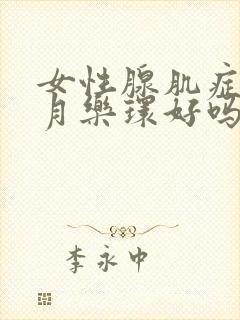 女性腺肌症
月乐环好吗
李永中